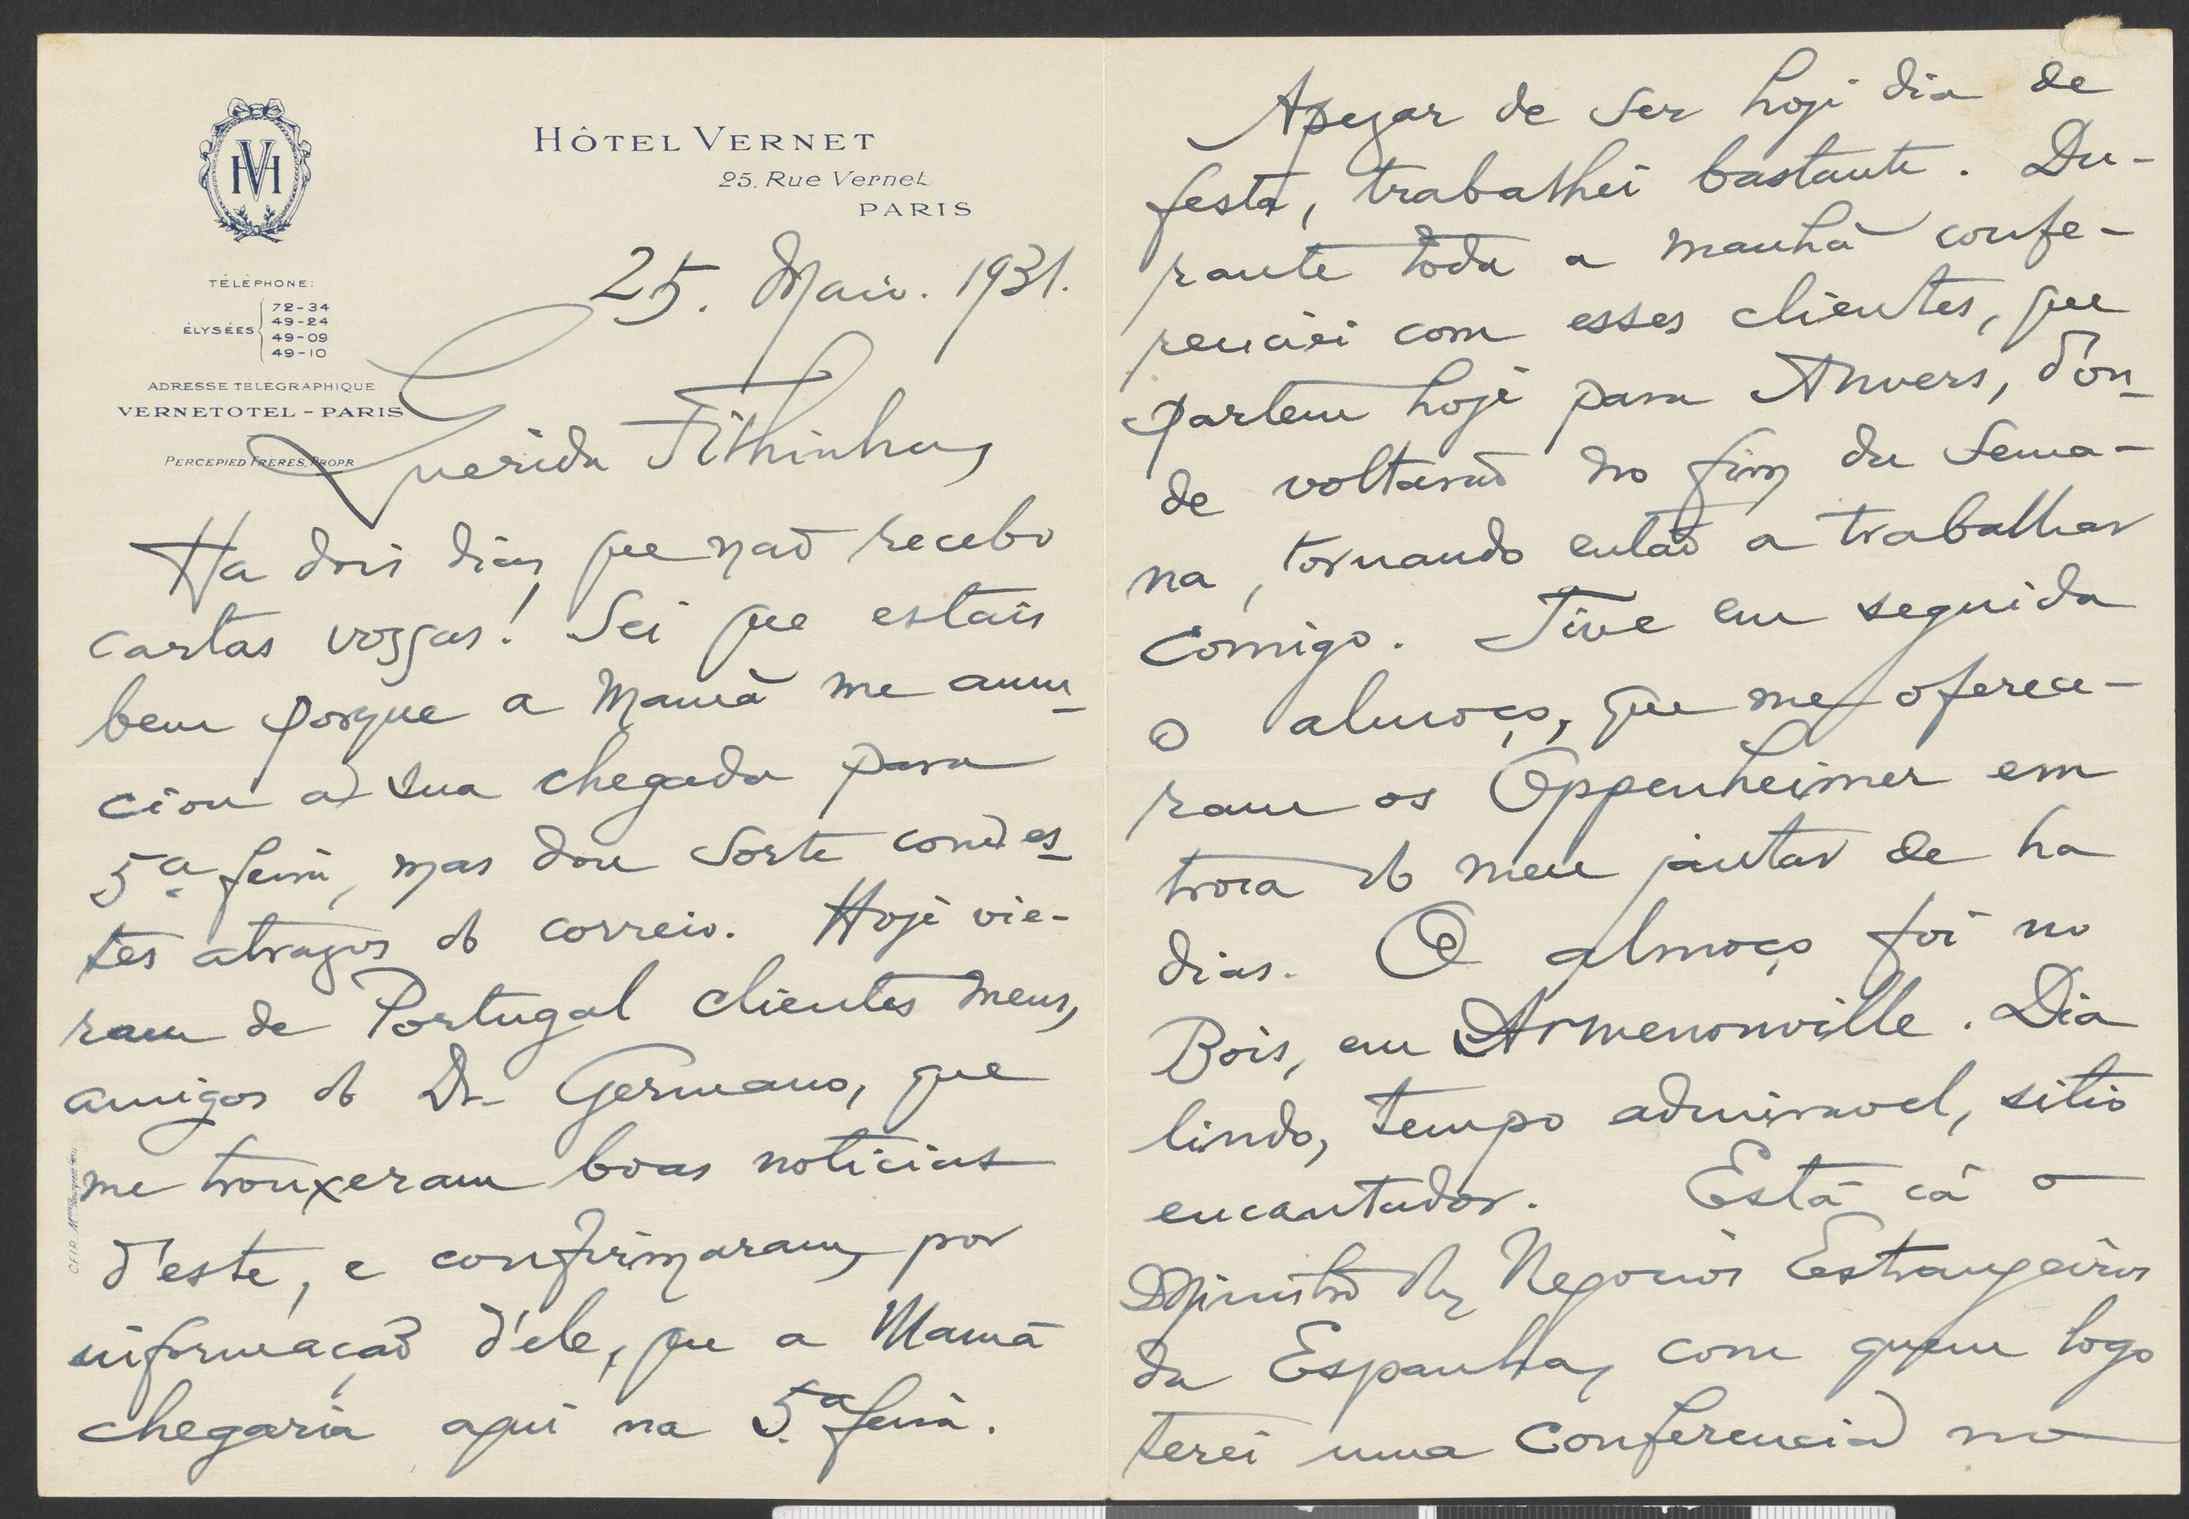 HÔTEL VERNET
25. Rue Vernet
PARIS
HV
TÉLÉPHONE:
ÉLYSÉES
72-34
49-24
49-09
49-10
ADRESSE TÉLÉGRAPHIQUE
VERNETOTEL - PARIS
PERCEPIED FRÈRES, PROPR
25. Maio. 1931.
Querida Filhinha,
Ha dois dias que naõ recebo
cartas vossas! Sei que estais
bem porque a Mamã me anun-
ciou a sua chegada para
5ª feira, mas dou sorte com es-
tes atrazos do correio. Hoje vie-
ram de Portugal clientes meus,
amigos do Dr. Germano, que
me trouxeram boas noticias
d'este, e confirmaram, por
informaçaõ d'ele, que a Mamã
chegaria aqui na 5ª feira.
Apezar de ser hoje dia de
festa, trabalhei bastante. Du-
rante toda a manhã confe-
renciei com esses clientes, que
partem hoje para Anvers, d'on-
de voltaraõ no fim da sema-
na, tornando entaõ a trabalhar
comigo. Tive em seguida
o almoço, que me oferece-
ram os Oppenheimer em
troca do meu jantar de ha
dias. O almoço foi no
Bois, em Armenonville. Dia
lindo, tempo admiravel, sitio
encantador. Está cá o
Ministro dos Negocios Estrangeiros
da Espanha, com quem logo
terei uma conferencia no